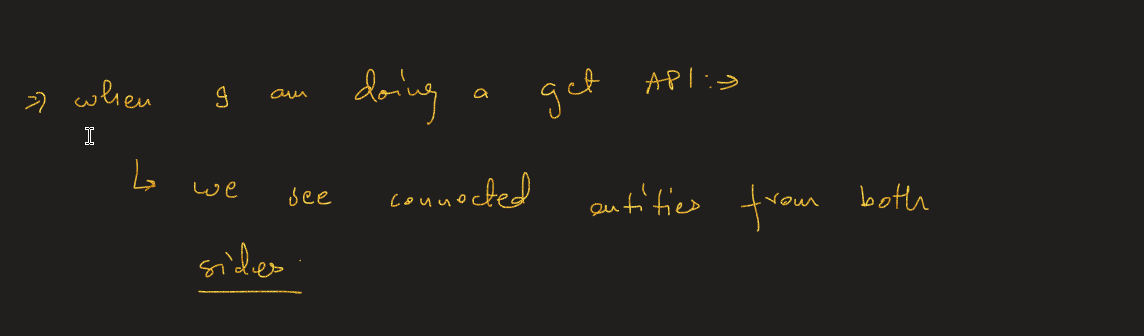 ⇒ when I am doing a get API:→
↳ we see connected entities from both
sides.